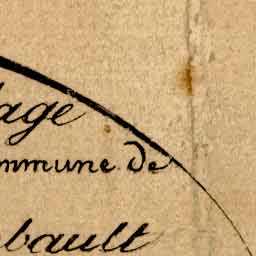 lage
ommune de
bault